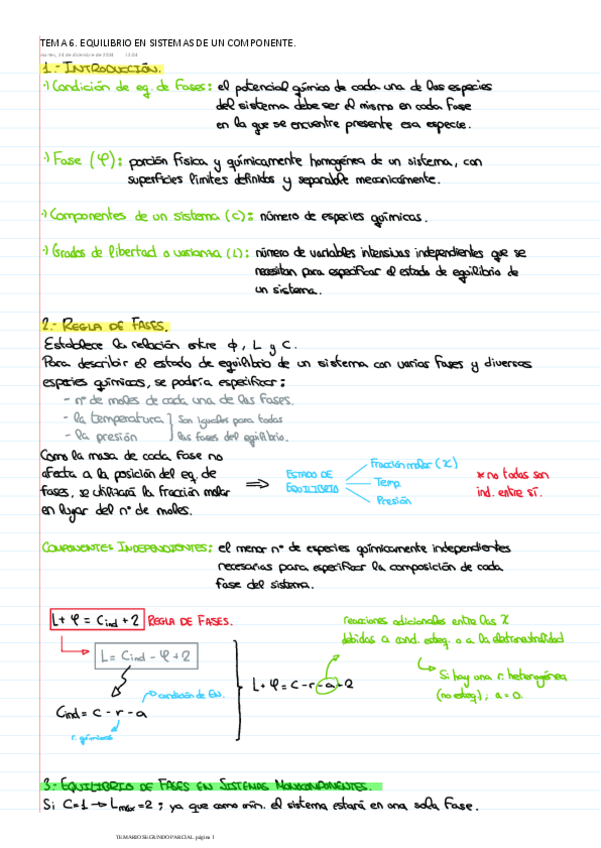 TEMA 6. EQUILIBRIO EN SISTEMAS DE UN COMPONENTE.
martes, 30 de diciembre de 2014 12:04
1.- INTRODUCCIÓN.
·) Condición de eq. de fases: el potencial químico de cada una de las especies
del sistema debe ser el mismo en cada fase
en la que se encuentre presente esa especie.
·) Fase (φ): porción física y químicamente homogénea de un sistema, con
superficies límites definidos y separable mecánicamente.
·) Componentes de un sistema (C): número de especies químicas.
·) Grados de libertad o varianza (L): número de variables intensivas independientes que se
necesitan para especificar el estado de equilibrio de
un sistema.
2.- REGLA DE FASES.
Establece la relación entre φ, L y C.
Para describir el estado de equilibrio de un sistema con varias fases y diversas
especies químicas, se podría especificar:
- nº de moles de cada una de las fases.
- la temperatura } son iguales para todas
- la presión } las fases del equilibrio.
Como la masa de cada fase no
afecta a la posición del eq. de
fases, se utilizará la fracción molar
en lugar del nº de moles.
⇒ ESTADO DE EQUILIBRIO
Fracción molar (X)
Temp
Presión
* no todas son
ind. entre sí.
COMPONENTES INDEPENDIENTES: el menor nº de especies químicamente independientes
necesarias para especificar la composición de cada
fase del sistema.
L + φ = Cind + 2 REGLA DE FASES.
L = Cind - φ + 2
Cind = C - r - a
condición de EN.
r. químicas
L + φ = C - r - a + 2
reacciones adicionales entre las X
debidas a cond. esteq. o a la electroneutralidad.
Si hay una r. heterogénea
(no esteq.), a = 0.
3.- EQUILIBRIO DE FASES EN SISTEMAS MONOCOMPONENTES.
Si C=1 → Lmáx = 2; ya que como mín. el sistema estará en una sola fase.
TEMARIO SEGUNDO PARCIAL página 1